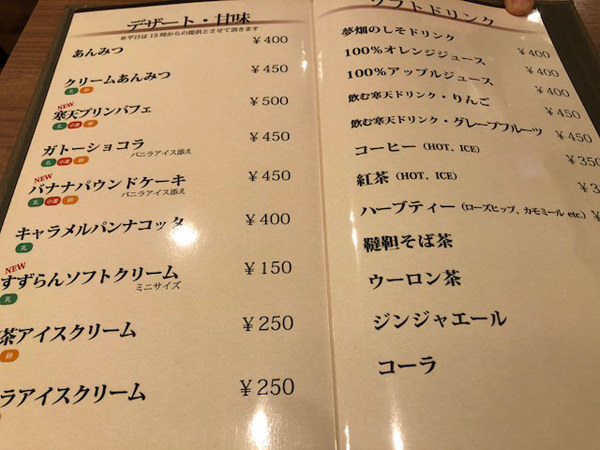 デザート・甘味
※平日は15時からの提供とさせて頂きます
あんみつ ¥400
クリームあんみつ ¥450
乳 卵
NEW
寒天プリンパフェ ¥500
乳 小麦 卵
ガトーショコラ ¥450
バニラアイス添え
乳 小麦 卵
NEW
バナナパウンドケーキ ¥450
バニラアイス添え
乳 小麦 卵
キャラメルパンナコッタ ¥400
乳
NEW
すずらんソフトクリーム ¥150
ミニサイズ
乳
茶アイスクリーム ¥250
卵
ラアイスクリーム ¥250
ソフトドリンク
夢畑のしそドリンク ¥400
100%オレンジジュース ¥400
100%アップルジュース ¥400
飲む寒天ドリンク・りんご ¥450
飲む寒天ドリンク・グレープフルーツ ¥450
コーヒー（HOT、ICE） ¥350
紅茶（HOT、ICE） ¥3
ハーブティー（ローズヒップ、カモミール etc.） ¥
韃靼そば茶
ウーロン茶
ジンジャエール
コーラ